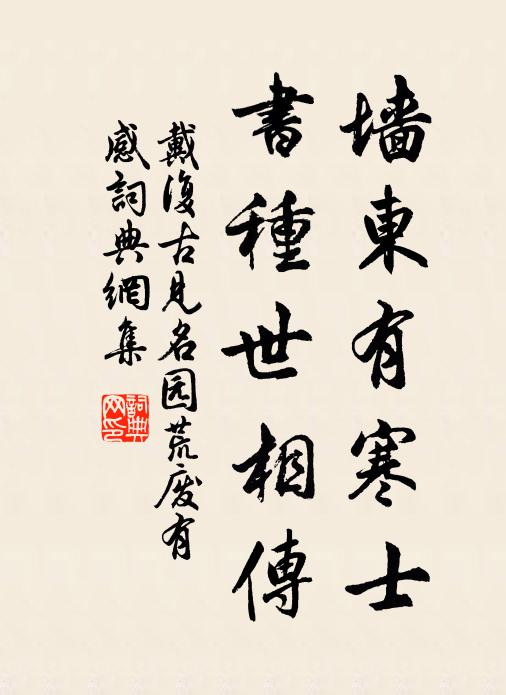 墙東有寒士
書種世相傳
戴復古見名园荒废有
感詞典網集
詞典网印